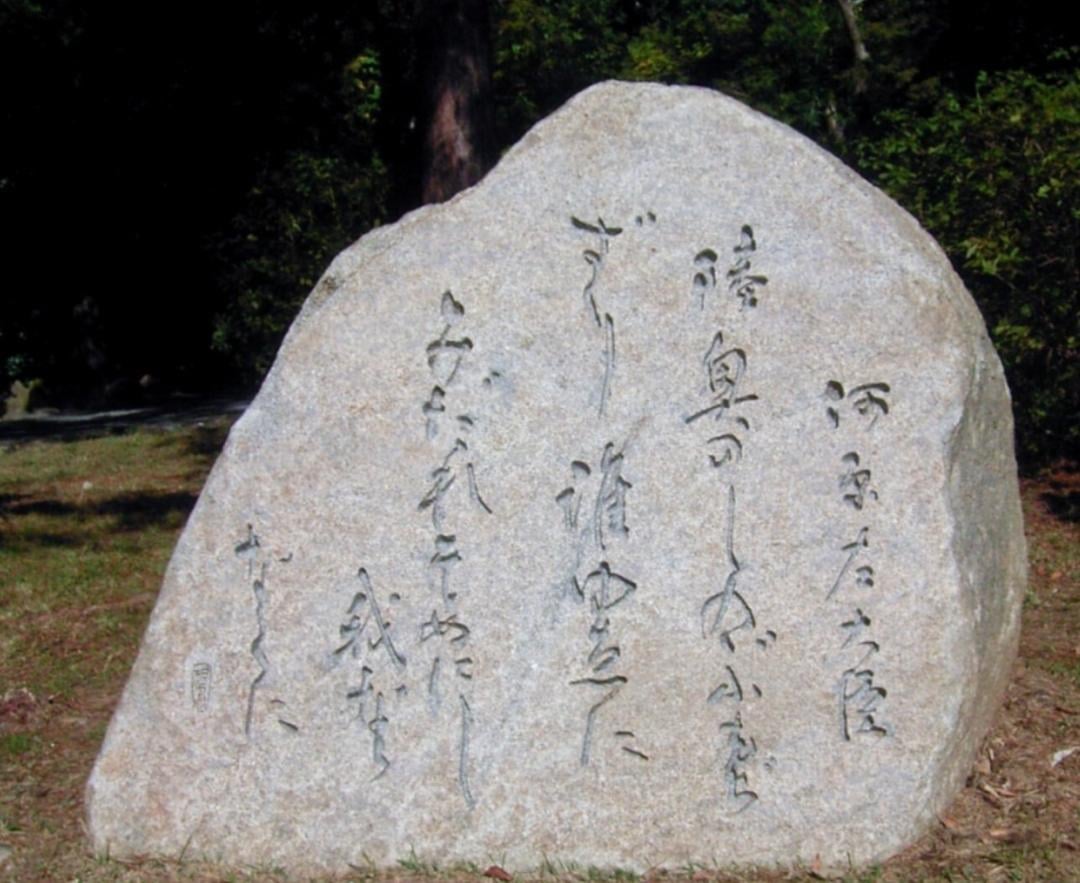 河原左大臣
陸奥のしのぶもぢ
ずり誰ゆゑに
みだれそめにし
我なら
なくに